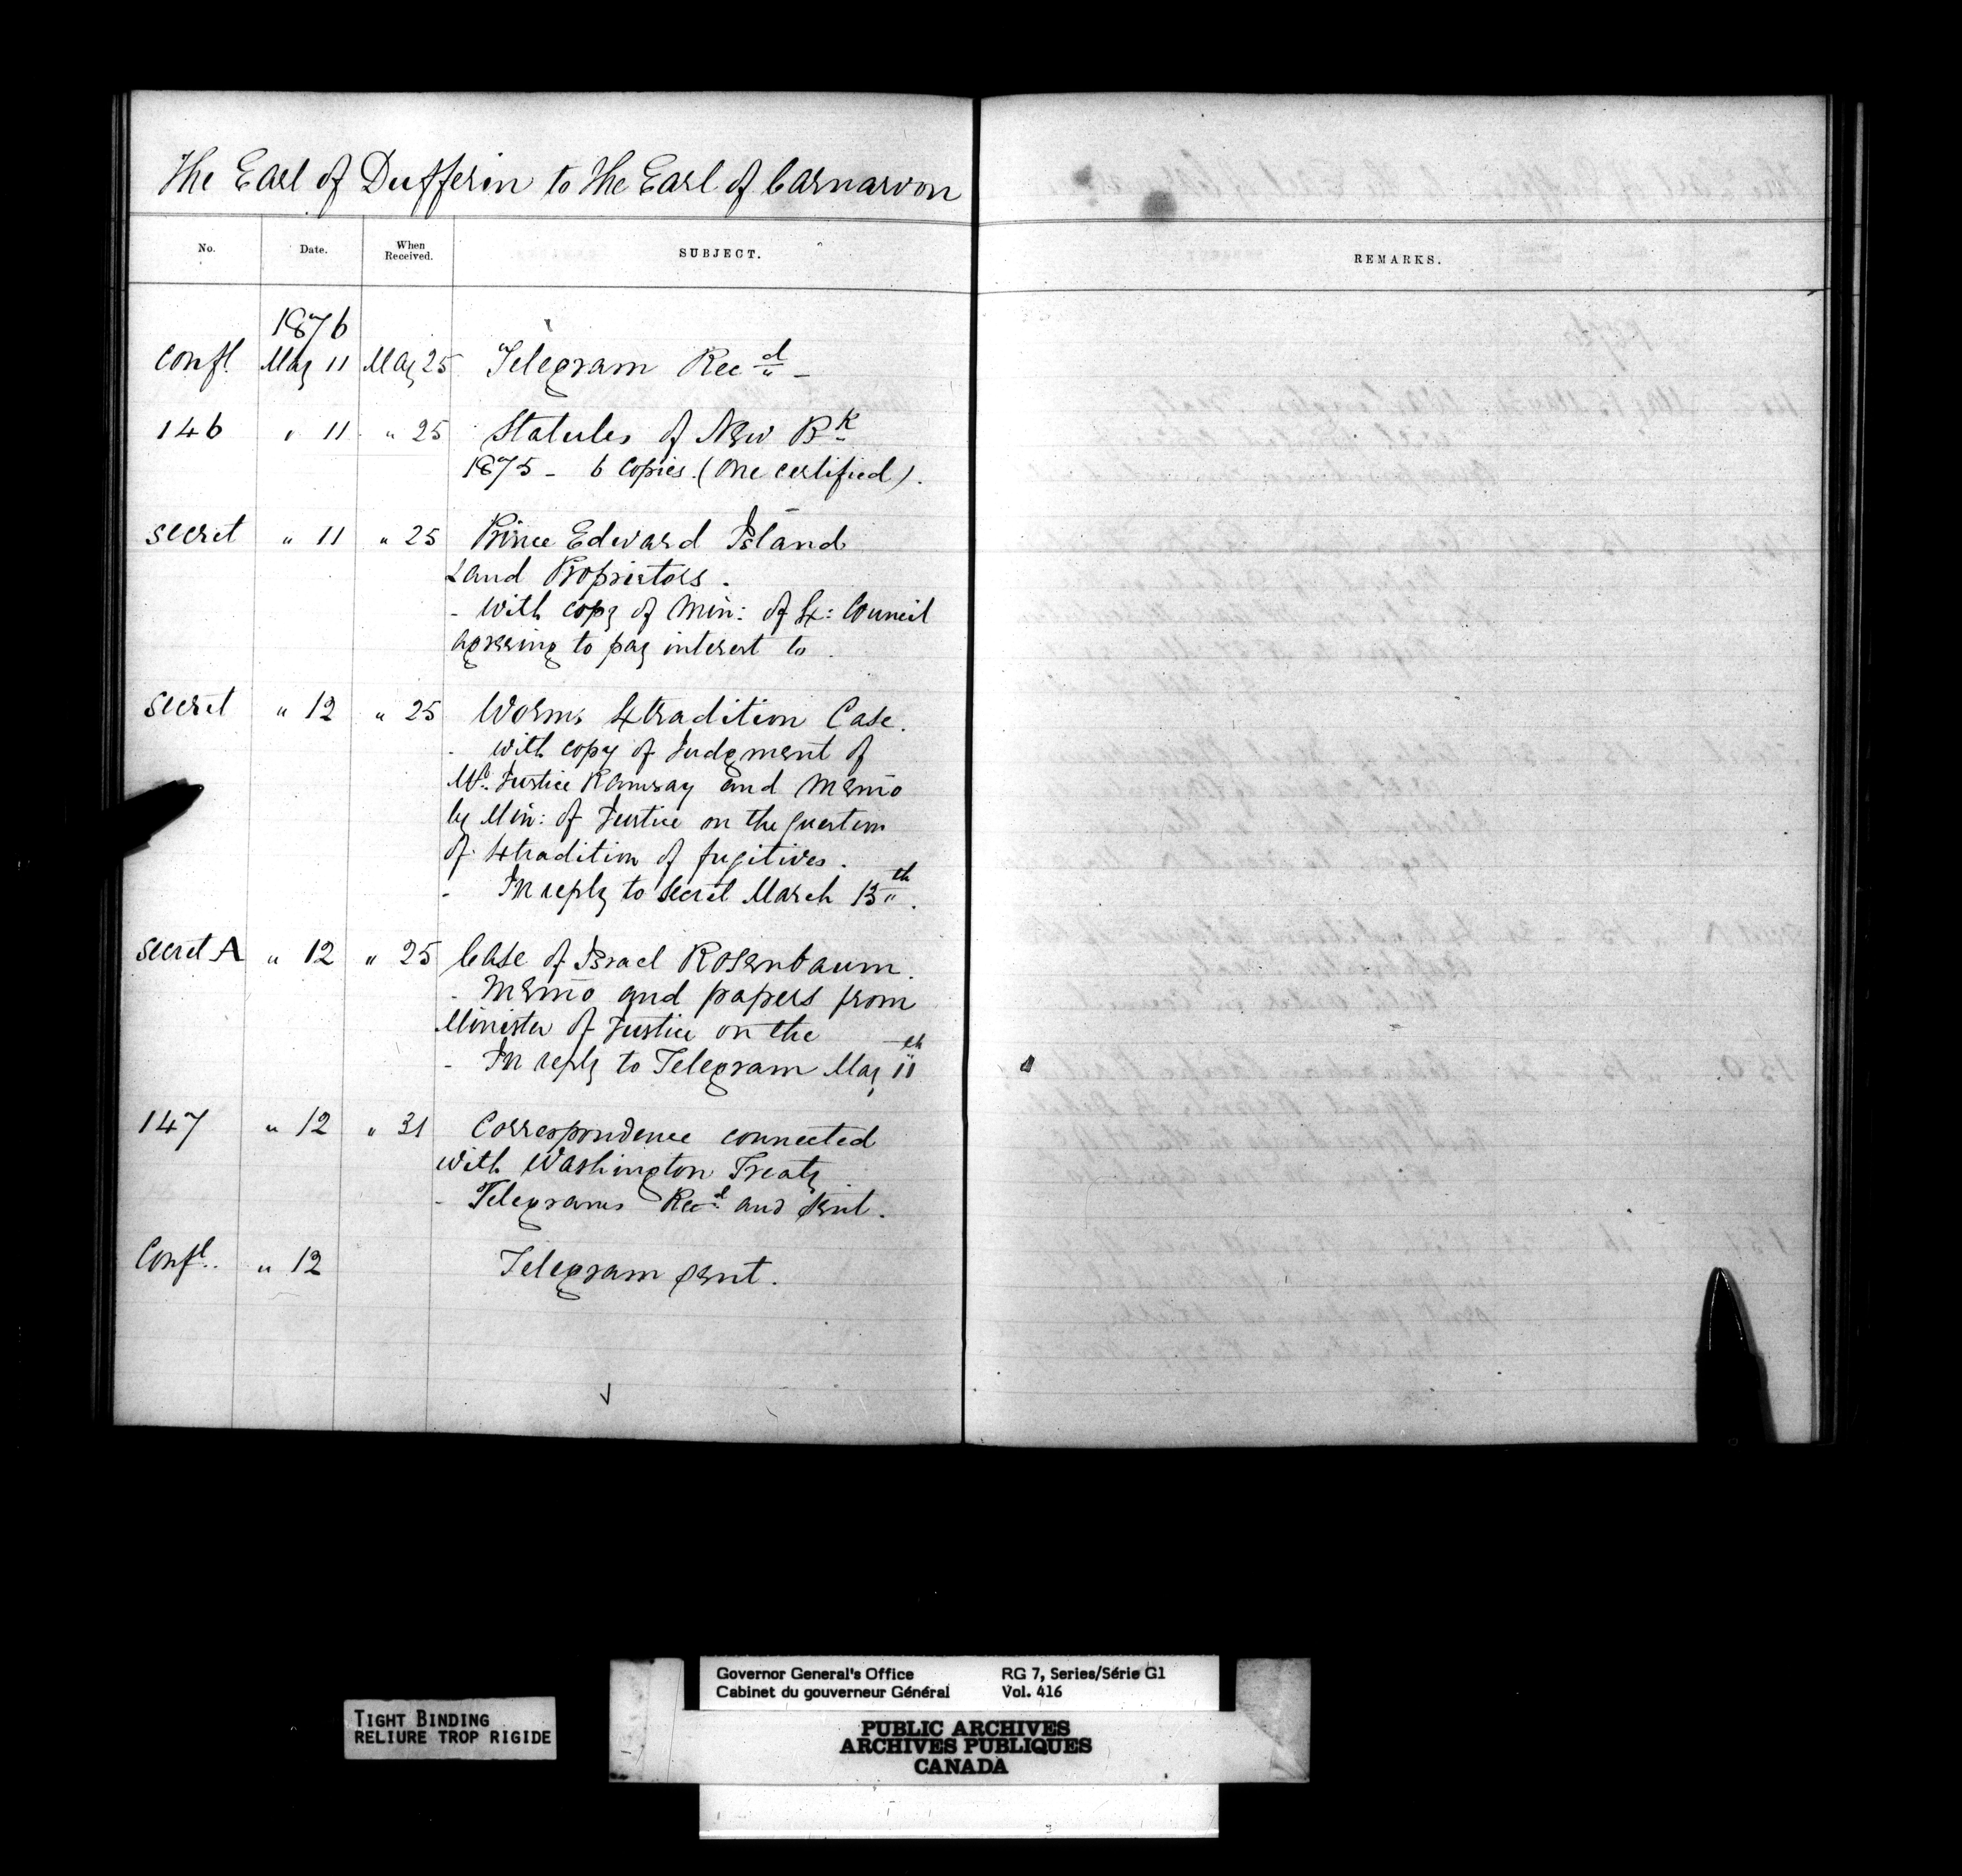 The Earl of Dufferin to The Earl of Carnarvon
No. Date. When Received. SUBJECT. REMARKS.
1876
Confl. May 11 May 25 Telegram Recd -
146 " 11 " 25 Statutes of New Bk
1875 - 6 Copies. (One certified).
Secret " 11 " 25 Prince Edward Island
Land Proprietors.
- With copy of Min: of Ex: Council
agreeing to pay interest to
Secret " 12 " 25 Worms Extradition Case.
- With copy of Judgment of
Mr. Justice Ramsay and Memo
by Min: of Justice on the question
of Extradition of fugitives.
- In reply to Secret March 13th.
Secret A " 12 " 25 Case of Israel Rosenbaum.
- Memo and papers from
Minister of Justice on the
- In reply to Telegram May 11th
147 " 12 " 31 Correspondence connected
with Washington Treaty
- Telegrams Recd and sent.
Confl. " 12 Telegram sent.
Governor General's Office RG 7, Series/Série G1
Cabinet du gouverneur Général Vol. 416
TIGHT BINDING
RELIURE TROP RIGIDE
PUBLIC ARCHIVES
ARCHIVES PUBLIQUES
CANADA